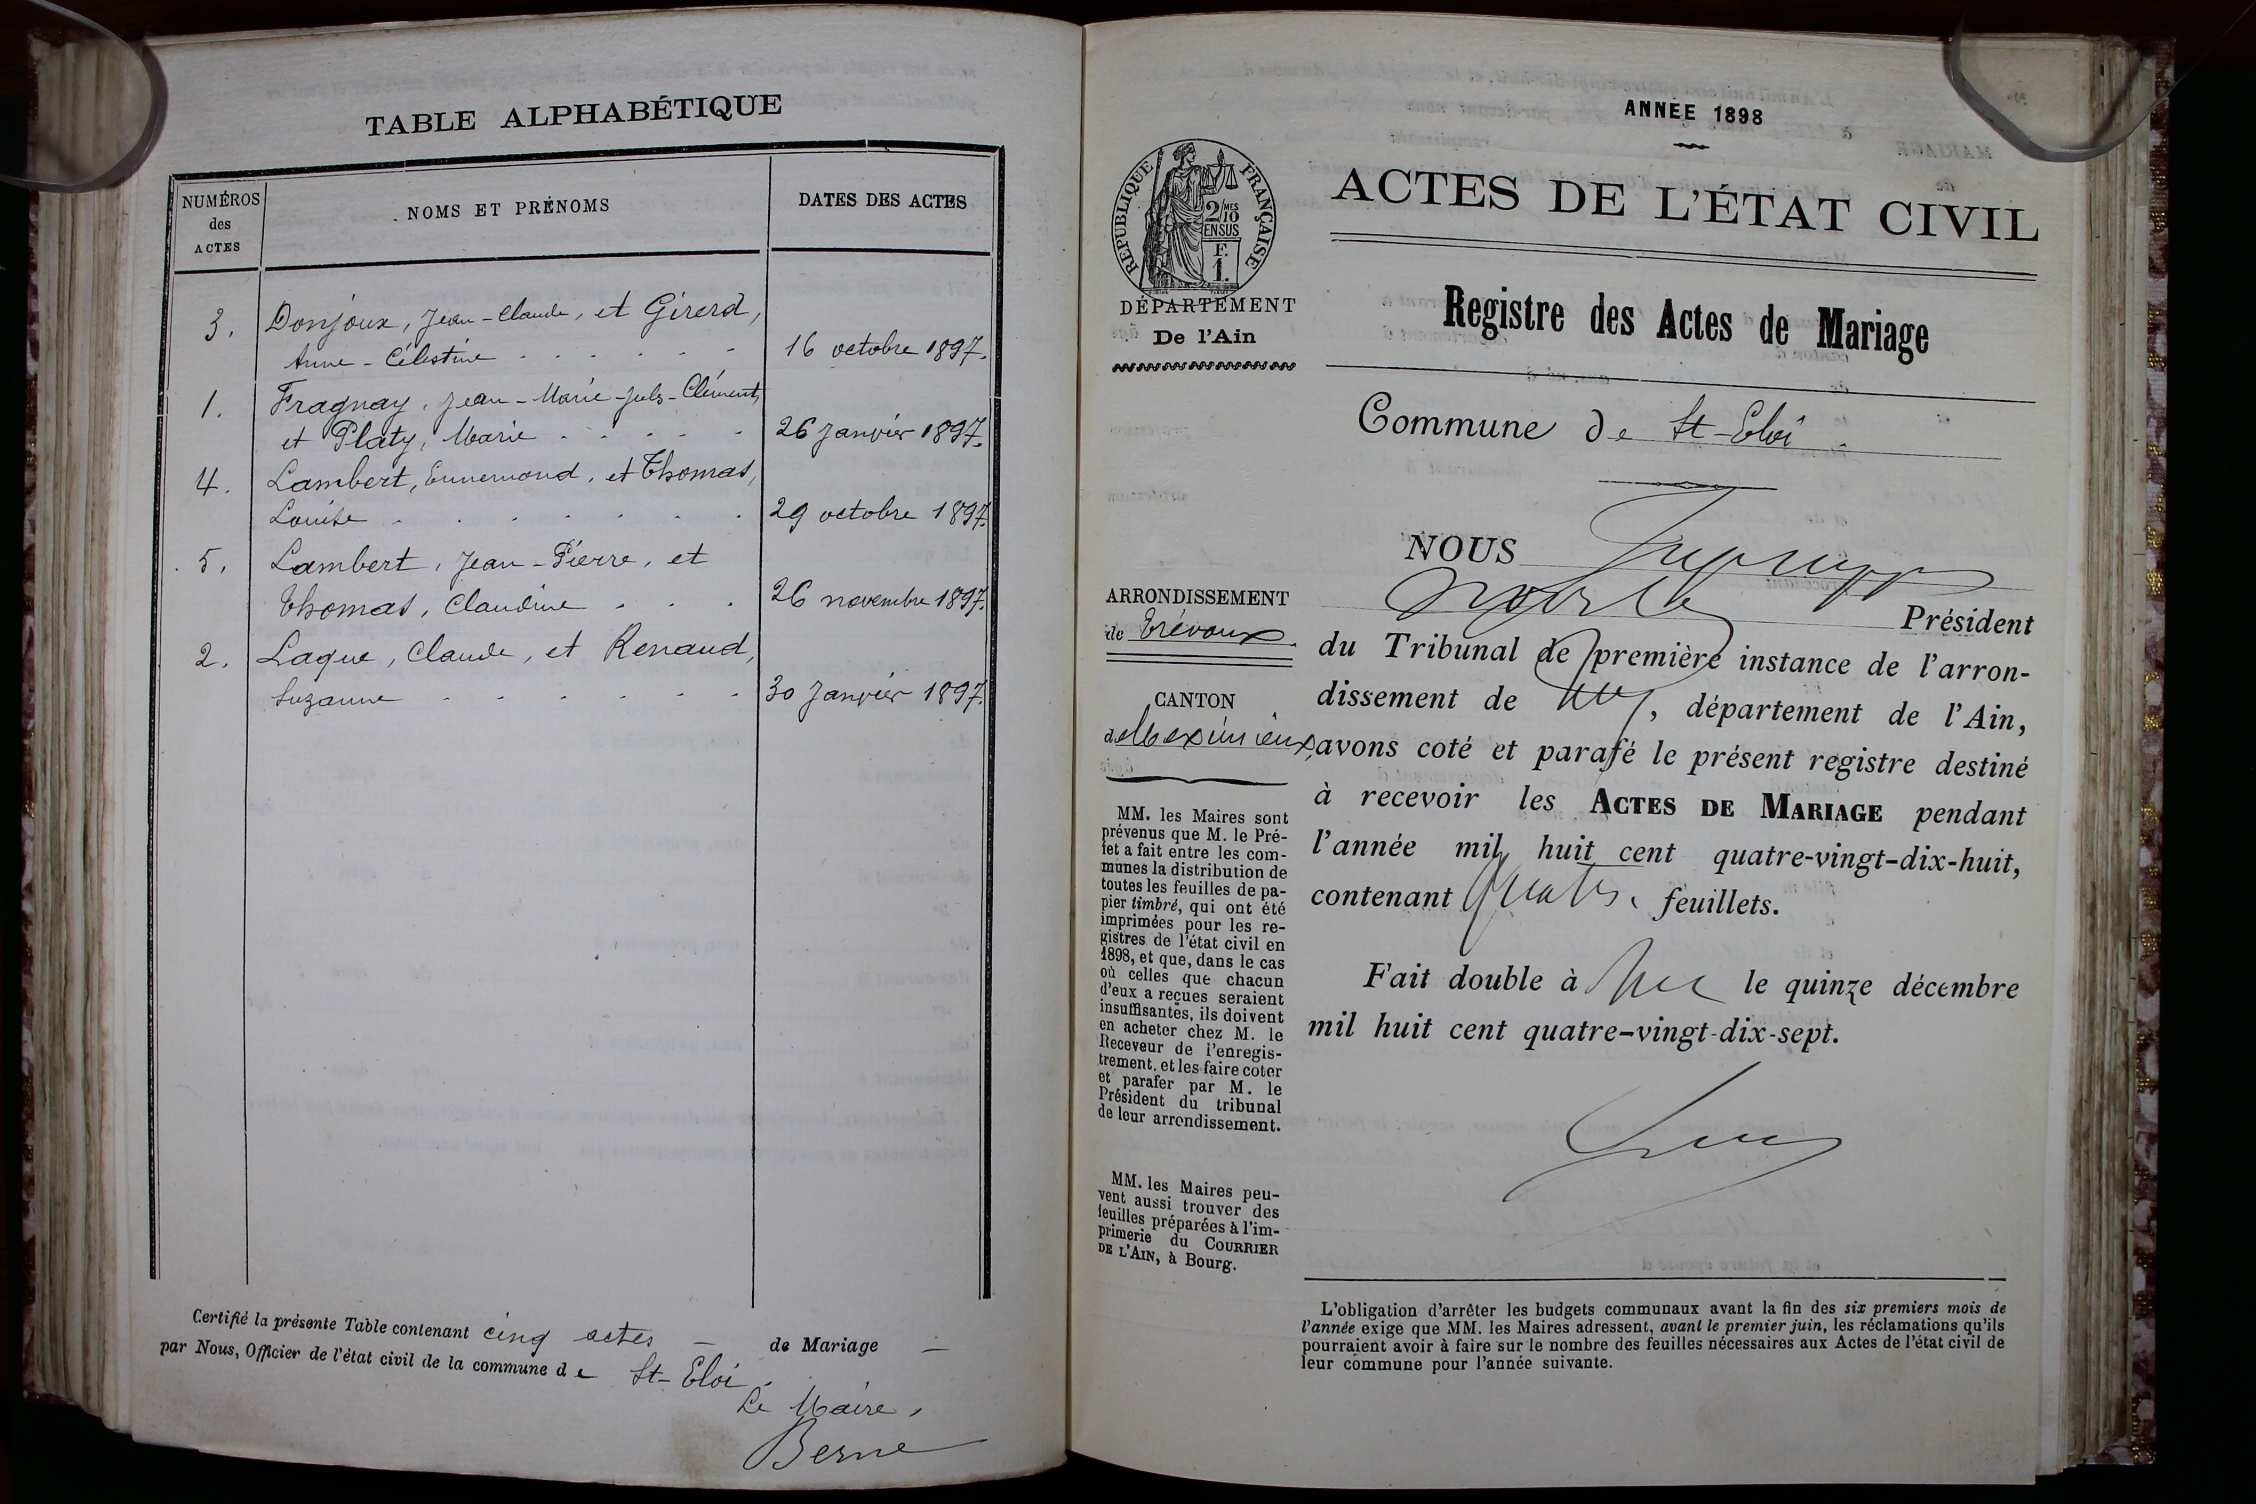 TABLE ALPHABÉTIQUE
NUMÉROS
des
ACTES
NOMS ET PRÉNOMS
DATES DES ACTES
3. Donjoux, Jean-Claude, et Girerd,
Anne-Célestine 16 octobre 1897.
1. Fragnay, Jean-Marie-Jules-Clément,
et Platy, Marie 26 Janvier 1897.
4. Lambert, Ennemond, et Thomas,
Louise 29 octobre 1897.
5. Lambert, Jean-Pierre, et
Thomas, Claudine 26 novembre 1897.
2. Lague, Claude, et Renaud,
Suzanne 30 Janvier 1897.
Certifié la présente Table contenant cinq actes — de Mariage —
par Nous, Officier de l'état civil de la commune de St-Eloi.
Le Maire,
Berne
ANNÉE 1898
RÉPUBLIQUE FRANÇAISE
2/10 MES
EN SUS
F.
1.
DÉPARTEMENT
De l'Ain
ACTES DE L'ÉTAT CIVIL
Registre des Actes de Mariage
Commune de St-Eloi.
ARRONDISSEMENT
de Trévoux.
CANTON
de Meximieux
MM. les Maires sont
prévenus que M. le Pré-
fet a fait entre les com-
munes la distribution de
toutes les feuilles de pa-
pier timbré, qui ont été
imprimées pour les re-
gistres de l'état civil en
1898, et que, dans le cas
où celles que chacun
d'eux a reçues seraient
insuffisantes, ils doivent
en acheter chez M. le
Receveur de l'enregis-
trement, et les faire coter
et parafer par M. le
Président du tribunal
de leur arrondissement.
MM. les Maires peu-
vent aussi trouver des
feuilles préparées à l'im-
primerie du COURRIER
DE L'AIN, à Bourg.
NOUS
Président
du Tribunal de première instance de l'arron-
dissement de , département de l'Ain,
avons coté et parafé le présent registre destiné
à recevoir les ACTES DE MARIAGE pendant
l'année mil huit cent quatre-vingt-dix-huit,
contenant quatre feuillets.
Fait double à le quinze décembre
mil huit cent quatre-vingt-dix-sept.
L'obligation d'arrêter les budgets communaux avant la fin des six premiers mois de
l'année exige que MM. les Maires adressent, avant le premier juin, les réclamations qu'ils
pourraient avoir à faire sur le nombre des feuilles nécessaires aux Actes de l'état civil de
leur commune pour l'année suivante.